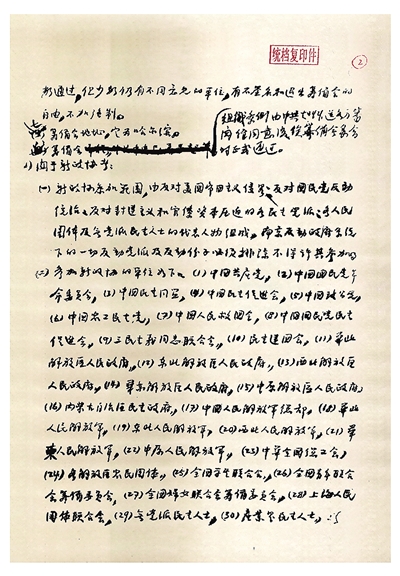 统档复印件
2
新通过，但少数仍有不同意见的单位，有不参加和退出筹备会的
自由，不加限制。
筹备会地址，定为哈尔滨。
筹备会
组织条例由中共起草
商得同意后俟筹备会集会
时正式通过。
1）关于新政协者：
（一）新政协参加范围，由反对美国帝国主义侵略，反对国民党反动
统治，反对封建主义和官僚资本压迫的各民主党派，各人民
团体及无党派民主人士的代表人物组成，南京反动政府系统
下的一切反动党派及反动分子必须排除，不得许其参加。
（二）参加新政协的单位如下，（1）中国共产党，（2）中国国民党革
命委员会，（3）中国民主同盟，（4）中国民主促进会，（5）中国致公党，
（6）中国农工民主党，（7）中国人民救国会，（8）中国国民党民主
促进会，（9）三民主义同志联合会，（10）民主建国会，（11）华北
解放区人民政府，（12）东北解放区人民政府，（13）西北解放区
人民政府，（14）华东解放区人民政府，（15）中原解放区人民政府，
（16）内蒙古自治区民主政府，（17）中国人民解放军总部，（18）华北
人民解放军，（19）东北人民解放军，（20）西北人民解放军，（21）华
东人民解放军，（22）中原人民解放军，（23）中华全国总工会，
（24）各解放区农民团体，（25）全国学生联合会，（26）全国青年联合
会筹备委员会，（27）全国妇女联合会筹备委员会，（28）上海人民
团体联合会，（29）无党派民主人士，（30）产业界民主人士，